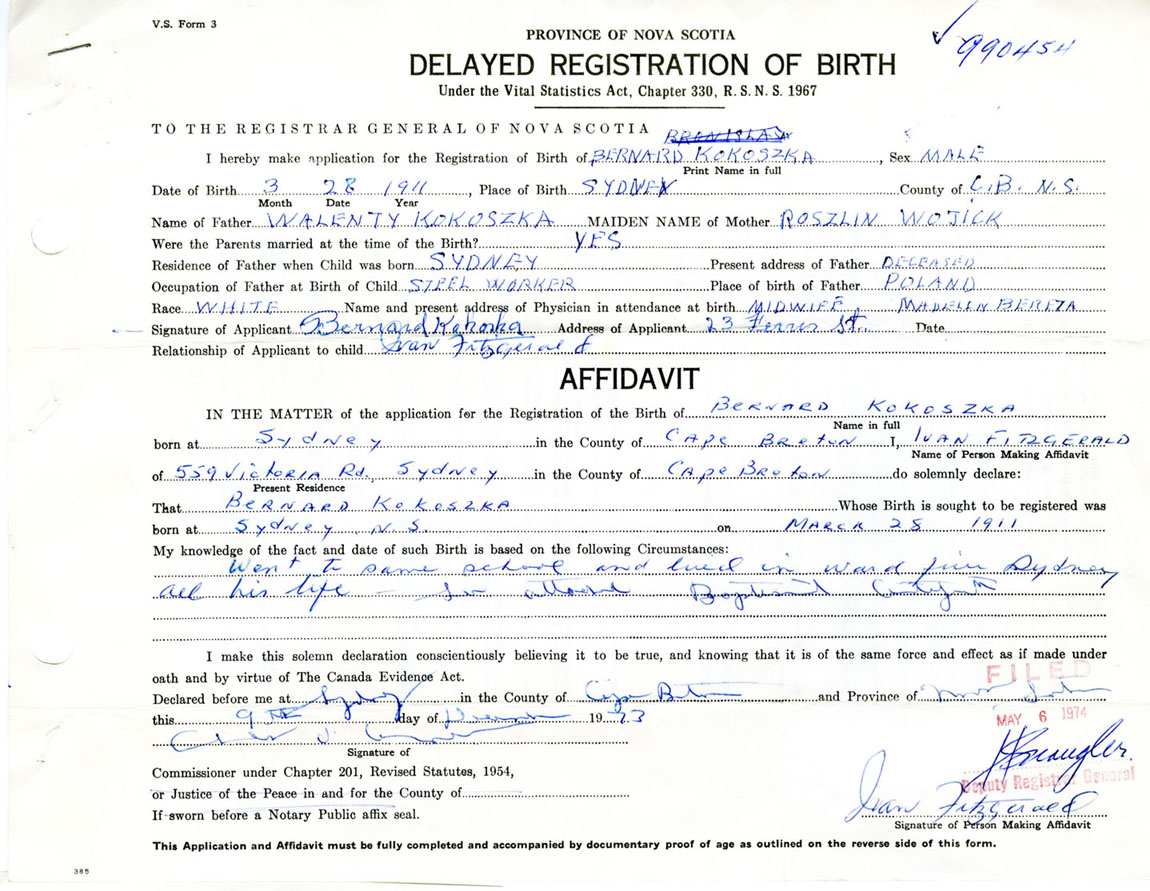 V.S. Form 3
990454
PROVINCE OF NOVA SCOTIA
DELAYED REGISTRATION OF BIRTH
Under the Vital Statistics Act, Chapter 330, R.S.N.S. 1967
TO THE REGISTRAR GENERAL OF NOVA SCOTIA BRONISLAW
I hereby make application for the Registration of Birth of BERNARD KOKOSZKA, Sex MALE
Print Name in full
Date of Birth 3 28 1911, Place of Birth SYDNEY County of C.B. N.S.
Month Date Year
Name of Father WALENTY KOKOSZKA MAIDEN NAME of Mother ROSZLIN WOJICK
Were the Parents married at the time of the Birth? YES
Residence of Father when Child was born SYDNEY Present address of Father DECEASED
Occupation of Father at Birth of Child STEEL WORKER Place of birth of Father POLAND
Race WHITE Name and present address of Physician in attendance at birth MIDWIFE, MADELIN BERETA
Signature of Applicant Bernard Kokoska Address of Applicant 23 Ferris St. Date
Relationship of Applicant to child Ivan Fitzgerald
AFFIDAVIT
IN THE MATTER of the application for the Registration of the Birth of BERNARD KOKOSZKA
Name in full
born at Sydney in the County of CAPE BRETON I, IVAN FITZGERALD
Name of Person Making Affidavit
of 559 Victoria Rd, Sydney in the County of CAPE BRETON do solemnly declare:
Present Residence
That BERNARD KOKOSZKA Whose Birth is sought to be registered was
born at Sydney N.S. on MARCH 28 1911
My knowledge of the fact and date of such Birth is based on the following Circumstances:
Went to same school and lived in ward five Sydney
all his life - See attached Baptismal Certificate
I make this solemn declaration conscientiously believing it to be true, and knowing that it is of the same force and effect as if made under
oath and by virtue of The Canada Evidence Act.
FILED
Declared before me at Sydney in the County of Cape Breton and Province of Nova Scotia
this 9th day of 1973
MAY 6 1974
Signature of
Commissioner under Chapter 201, Revised Statutes, 1954,
Deputy Registrar General
or Justice of the Peace in and for the County of
Ivan Fitzgerald
If sworn before a Notary Public affix seal.
Signature of Person Making Affidavit
This Application and Affidavit must be fully completed and accompanied by documentary proof of age as outlined on the reverse side of this form.
385